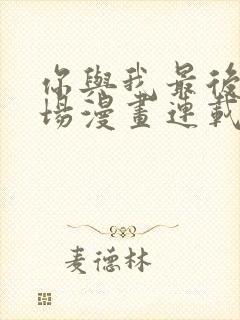 你與我最後
場漫畫連載
麦德林